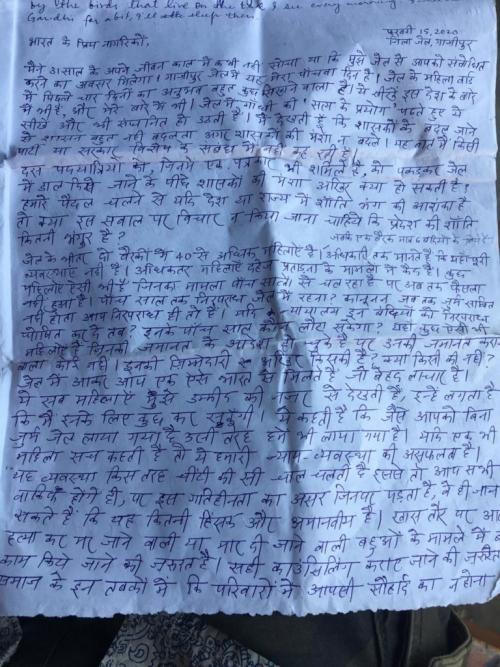 by the birds that live on the tree I see every morning
Gandhi for a bit, I'll
फरवरी 15, 2020
जिला जेल, गाजीपुर
भारत के प्रिय नागरिकों,
मैंने 31 साल के अपने जीवन काल में कभी नहीं सोचा था कि मुझे जेल से आपको संबोधित
करने का अवसर मिलेगा। गाजीपुर जेल में यह मेरा पाँचवा दिन है। जेल के महिला वार्ड
में पिछले चार दिनों का अनुभव बहुत कुछ सिखाने वाला है। ये सीखें इस देश के बारे
में भी हैं, और मेरे बारे में भी। जेल में गाँधी की 'सत्य के प्रयोग' पढ़ते हुए ये
सीखें और भी हो उठती हैं। मैं देखती हूँ कि शासकों के बदल जाने
से शासन बहुत नहीं बदलता अगर शासकों की मंशा न बदले। यह बात मैं किसी
पार्टी या सरकार विशेष के संबंध में नहीं कह रही हूँ।
दस पदयात्रियों को, जिनमें एक पत्रकार भी शामिल है, को पकड़कर जेल
में डाल दिये जाने के पीछे शासकों की मंशा आखिर क्या हो सकती है?
हमारे पैदल चलने से यदि देश या राज्य में शांति भंग की आशंका है
तो क्या इस सवाल पर विचार न किया जाना चाहिये कि प्रदेश की शांति
कितनी भंगुर है?
जेल के भीतर दो बैरकों में 40 से अधिक महिलाएँ हैं। अधिकारी तक मानते हैं कि यहाँ पूरी
व्यवस्थाएँ नहीं हैं। अधिकतर महिलाएँ दहेज प्रताड़ना के मामलों में कैद हैं। कुछ
महिलाएँ ऐसी भी हैं जिनका मामला पाँच सालों से चल रहा है पर अब तक फैसला
नहीं हुआ है। पाँच साल तक निरपराध जेल में रहना? कानूनन जब तक जुर्म साबित
नहीं होता आप निरपराध ही तो हैं। यदि न्यायालय इन बंदियों को निरपराध
घोषित कर दे तब? इनके पाँच साल कौन लौटा सकेगा? यहाँ कुछ ऐसी भी
महिलाएँ हैं जिनकी जमानत के आदेश हो चुके हैं पर उनकी जमानत कराने
वाला कोई नहीं। इनकी ज़िम्मेदारी आखिर किसकी है? क्या किसी की नहीं?
जेल में आकर आप एक ऐसे भारत से मिलते हैं, जो बेहद लाचार है।
ये सब महिलाएँ मुझे उम्मीद की नज़र से देखती हैं, इन्हें लगता है
कि मैं इनके लिए कुछ कर सकूँगी। ये कहती हैं कि जैसे आपको बिना
जुर्म जेल लाया गया है उसी तरह हमें भी लाया गया है। यदि एक भी
महिला सच कहती है तो ये हमारी न्याय-व्यवस्था की असफलता है।
यह व्यवस्था किस तरह चींटी की सी चाल चलती है इससे तो आप सभी
वाकिफ होंगे ही, पर इस गतिहीनता का असर जिनपर पड़ता है, वे ही जान
सकते हैं कि यह कितनी हिंसक और अमानवीय है। खास तौर पर आत्म
हत्या कर मर जाने वाली या मार दी जाने वाली बहुओं के मामले में
काम किये जाने की जरूरत है। सही काउंसिलिंग कराए जाने की जरूरत
समाज के इन तबकों में कि परिवारों में आपसी सौहार्द का न होना